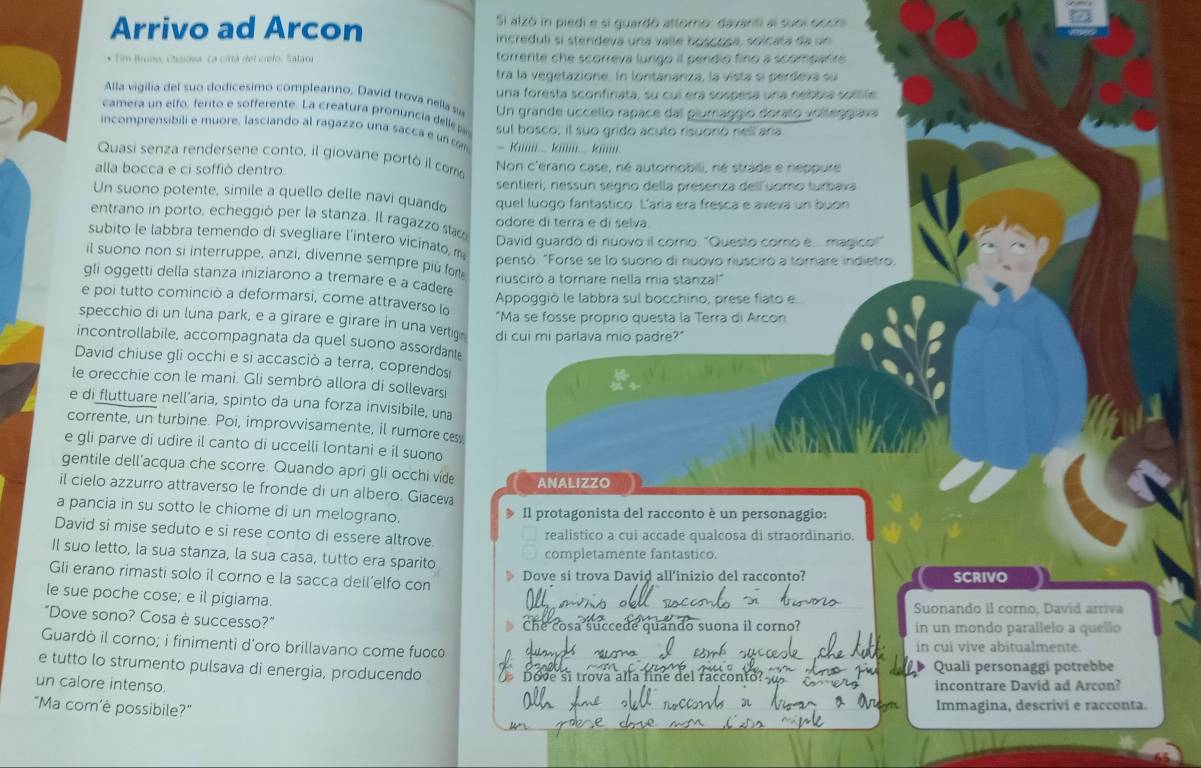 Arrivo ad Arcon
Tim Bruno, Ossidea. La città del cielo, Salani
Alla vigilia del suo dodicesimo compleanno, David trova nella sua
camera un elfo, ferito e sofferente. La creatura pronuncia delle
incomprensibili e muore, lasciando al ragazzo una sacca e un corno
Quasi senza rendersene conto, il giovane portò il corno
alla bocca e ci soffiò dentro.
Un suono potente, simile a quello delle navi quando
entrano in porto, echeggiò per la stanza. Il ragazzo staccò
subito le labbra temendo di svegliare l'intero vicinato, ma
il suono non si interruppe, anzi, divenne sempre più forte
gli oggetti della stanza iniziarono a tremare e a cadere
e poi tutto cominciò a deformarsi, come attraverso lo
specchio di un luna park, e a girare e girare in una vertigine
incontrollabile, accompagnata da quel suono assordante
David chiuse gli occhi e si accasciò a terra, coprendosi
le orecchie con le mani. Gli sembrò allora di sollevarsi
e di fluttuare nell'aria, spinto da una forza invisibile, una
corrente, un turbine. Poi, improvvisamente, il rumore cessò
e gli parve di udire il canto di uccelli lontani e il suono
gentile dell'acqua che scorre. Quando aprì gli occhi vide
il cielo azzurro attraverso le fronde di un albero. Giaceva
a pancia in su sotto le chiome di un melograno.
David si mise seduto e si rese conto di essere altrove.
Il suo letto, la sua stanza, la sua casa, tutto era sparito
Gli erano rimasti solo il corno e la sacca dell'elfo con
le sue poche cose; e il pigiama.
"Dove sono? Cosa è successo?"
Guardò il corno; i finimenti d'oro brillavano come fuoco
e tutto lo strumento pulsava di energia, producendo
un calore intenso.
"Ma com'è possibile?"
Si alzò in piedi e si guardò attorno: davanti ai suoi occhi
increduli si stendeva una valle boscosa, solcata da un
torrente che scorreva lungo il pendio fino a scomparire
tra la vegetazione. In lontananza, la vista si perdeva su
una foresta sconfinata, su cui era sospesa una nebbia sottile
Un grande uccello rapace dal piumaggio dorato volteggiava
sul bosco; il suo grido acuto risuonò nell'aria.
– Kiiiiii... kiiiiii... kiiiiii.
Non c'erano case, né automobili, né strade e neppure
sentieri; nessun segno della presenza dell'uomo turbava
quel luogo fantastico. L'aria era fresca e aveva un buon
odore di terra e di selva.
David guardò di nuovo il corno. "Questo corno è... magico!"
pensò. "Forse se lo suono di nuovo riuscirò a tornare indietro,
riuscirò a tornare nella mia stanza!"
Appoggiò le labbra sul bocchino, prese fiato e...
"Ma se fosse proprio questa la Terra di Arcon
di cui mi parlava mio padre?"
ANALIZZO
Il protagonista del racconto è un personaggio:
realistico a cui accade qualcosa di straordinario.
completamente fantastico.
Dove si trova David all'inizio del racconto?
dell racconto si trovora
nella sua camera
Che cosa succede quando suona il corno?
suona il succede che tutti
gli non
Dove si trova alla fine del racconto?
sua camera
alla fine dell racconto si trova a Arcon
un dove non
SCRIVO
Suonando il corno, David arriva
in un mondo parallelo a quello
in cui vive abitualmente.
Quali personaggi potrebbe
incontrare David ad Arcon?
Immagina, descrivi e racconta.
65